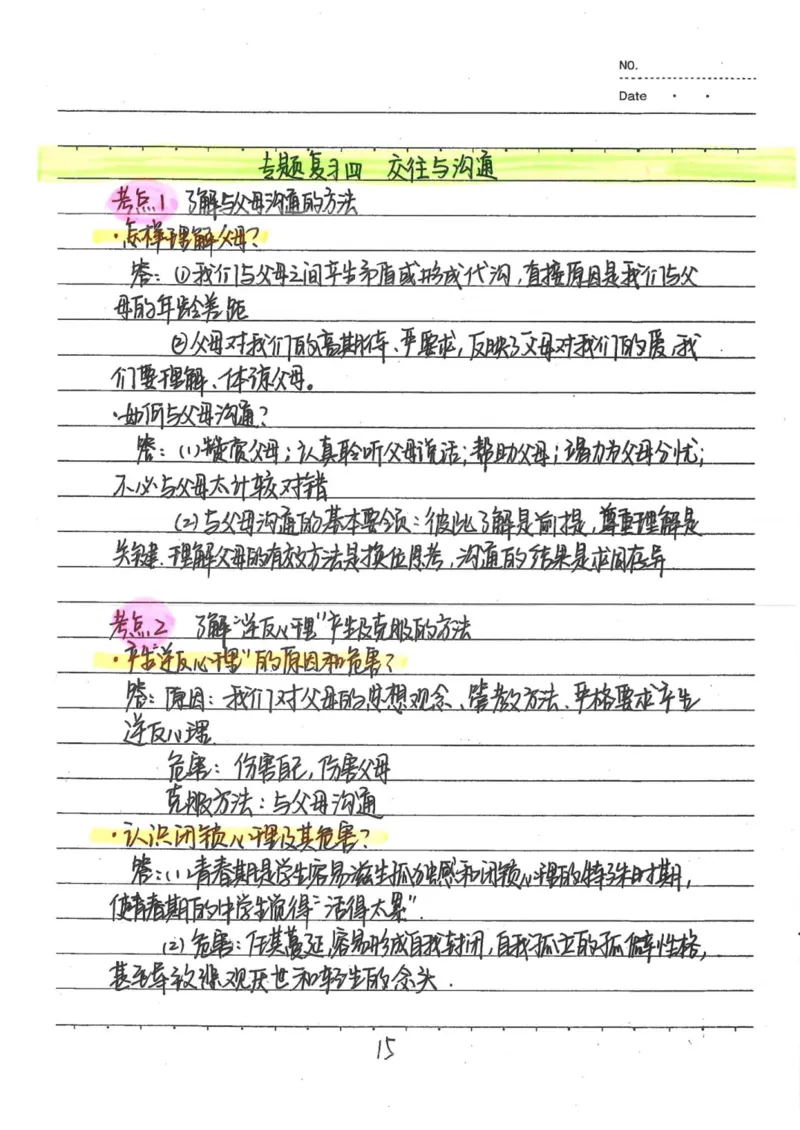 NO.
Date
专题复习四 交往与沟通
考点1 了解与父母沟通的方法
·怎样理解父母?
答:①我们与父母之间产生矛盾或形成代沟,直接原因是我们与父
母的年龄差距
②父母对我们的高期待、严要求,反映了父母对我们的爱,我
们要理解、体谅父母。
·如何与父母沟通?
答:(1)赞赏父母;认真聆听父母说话;帮助父母;竭力为父母分忧;
不必与父母太计较对错
(2)与父母沟通的基本要领:彼此了解是前提,尊重理解是
关键.理解父母的有效方法是换位思考,沟通的结果是求同存异
考点2 了解"逆反心理"产生及克服的方法
·产生"逆反心理"的原因和危害?
答:原因:我们对父母的思想观念、管教方法、严格要求产生
逆反心理.
危害:伤害自己,伤害父母
克服方法:与父母沟通
·认识闭锁心理及其危害?
答:(1)青春期是学生容易滋生孤独感和闭锁心理的特殊时期,
使青春期的中学生觉得"活得太累".
(2)危害:任其蔓延,容易形成自我封闭,自我孤立的孤僻性格,
甚至导致悲观厌世和轻生的念头.
15